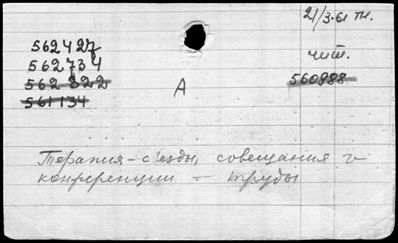 21/3.61 тг.
562427
562734
чит.
562822
560988
561134
А
Терапия - съезды, совещания и
конференции - труды